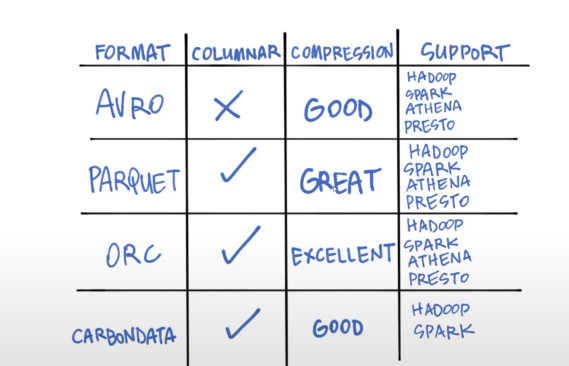 FORMAT COLUMNAR COMPRESSION SUPPORT
AVRO X GOOD HADOOP
SPARK
ATHENA
PRESTO
PARQUET ✓ GREAT HADOOP
SPARK
ATHENA
PRESTO
ORC ✓ EXCELLENT HADOOP
SPARK
ATHENA
PRESTO
CARBONDATA ✓ GOOD HADOOP
SPARK